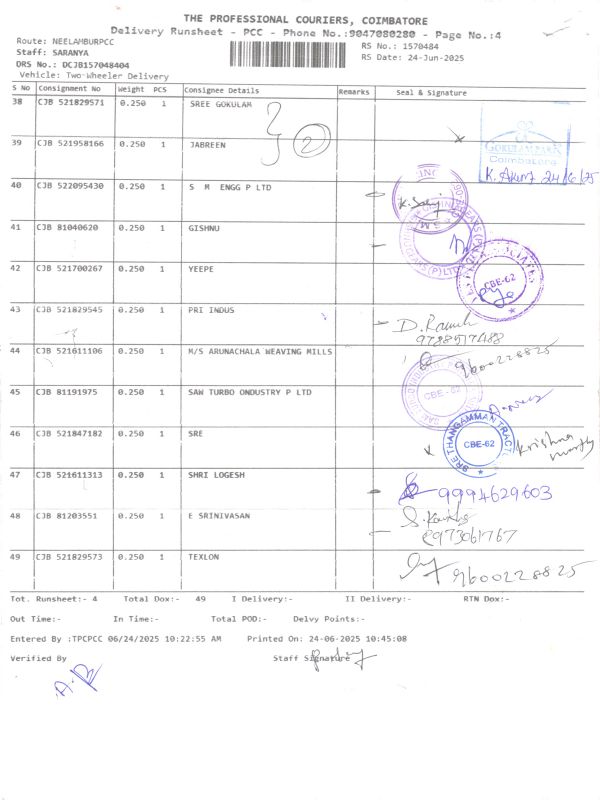 THE PROFESSIONAL COURIERS, COIMBATORE
Delivery Runsheet - PCC - Phone No.:9047080280 - Page No.:4
Route: NEELAMBURPCC
RS No.: 1570484
Staff: SARANYA
RS Date: 24-Jun-2025
DRS No.: DCJB157048404
Vehicle: Two-Wheeler Delivery
S No Consignment No Weight PCS Consignee Details Remarks Seal & Signature
38 CJB 521829571 0.250 1 SREE GOKULAM
2
GOKULAM PARK
Coimbatore
39 CJB 521958166 0.250 1 JABREEN
24/6/25
40 CJB 522095430 0.250 1 S M ENGG P LTD
41 CJB 81040620 0.250 1 GISHNU
42 CJB 521700267 0.250 1 YEEPE
CBE-62
43 CJB 521829545 0.250 1 PRI INDUS
9788517488
44 CJB 521611106 0.250 1 M/S ARUNACHALA WEAVING MILLS
9600228825
45 CJB 81191975 0.250 1 SAW TURBO ONDUSTRY P LTD
CBE-62
46 CJB 521847182 0.250 1 SRE
SRE THANGAMMAN TRACTO
CBE-62
Krishna
47 CJB 521611313 0.250 1 SHRI LOGESH
9994629603
48 CJB 81203551 0.250 1 E SRINIVASAN
8973061767
49 CJB 521829573 0.250 1 TEXLON
9600228825
Tot. Runsheet:- 4 Total Dox:- 49 I Delivery:- II Delivery:- RTN Dox:-
Out Time:- In Time:- Total POD:- Delvy Points:-
Entered By :TPCPCC 06/24/2025 10:22:55 AM Printed On: 24-06-2025 10:45:08
Verified By Staff Signature